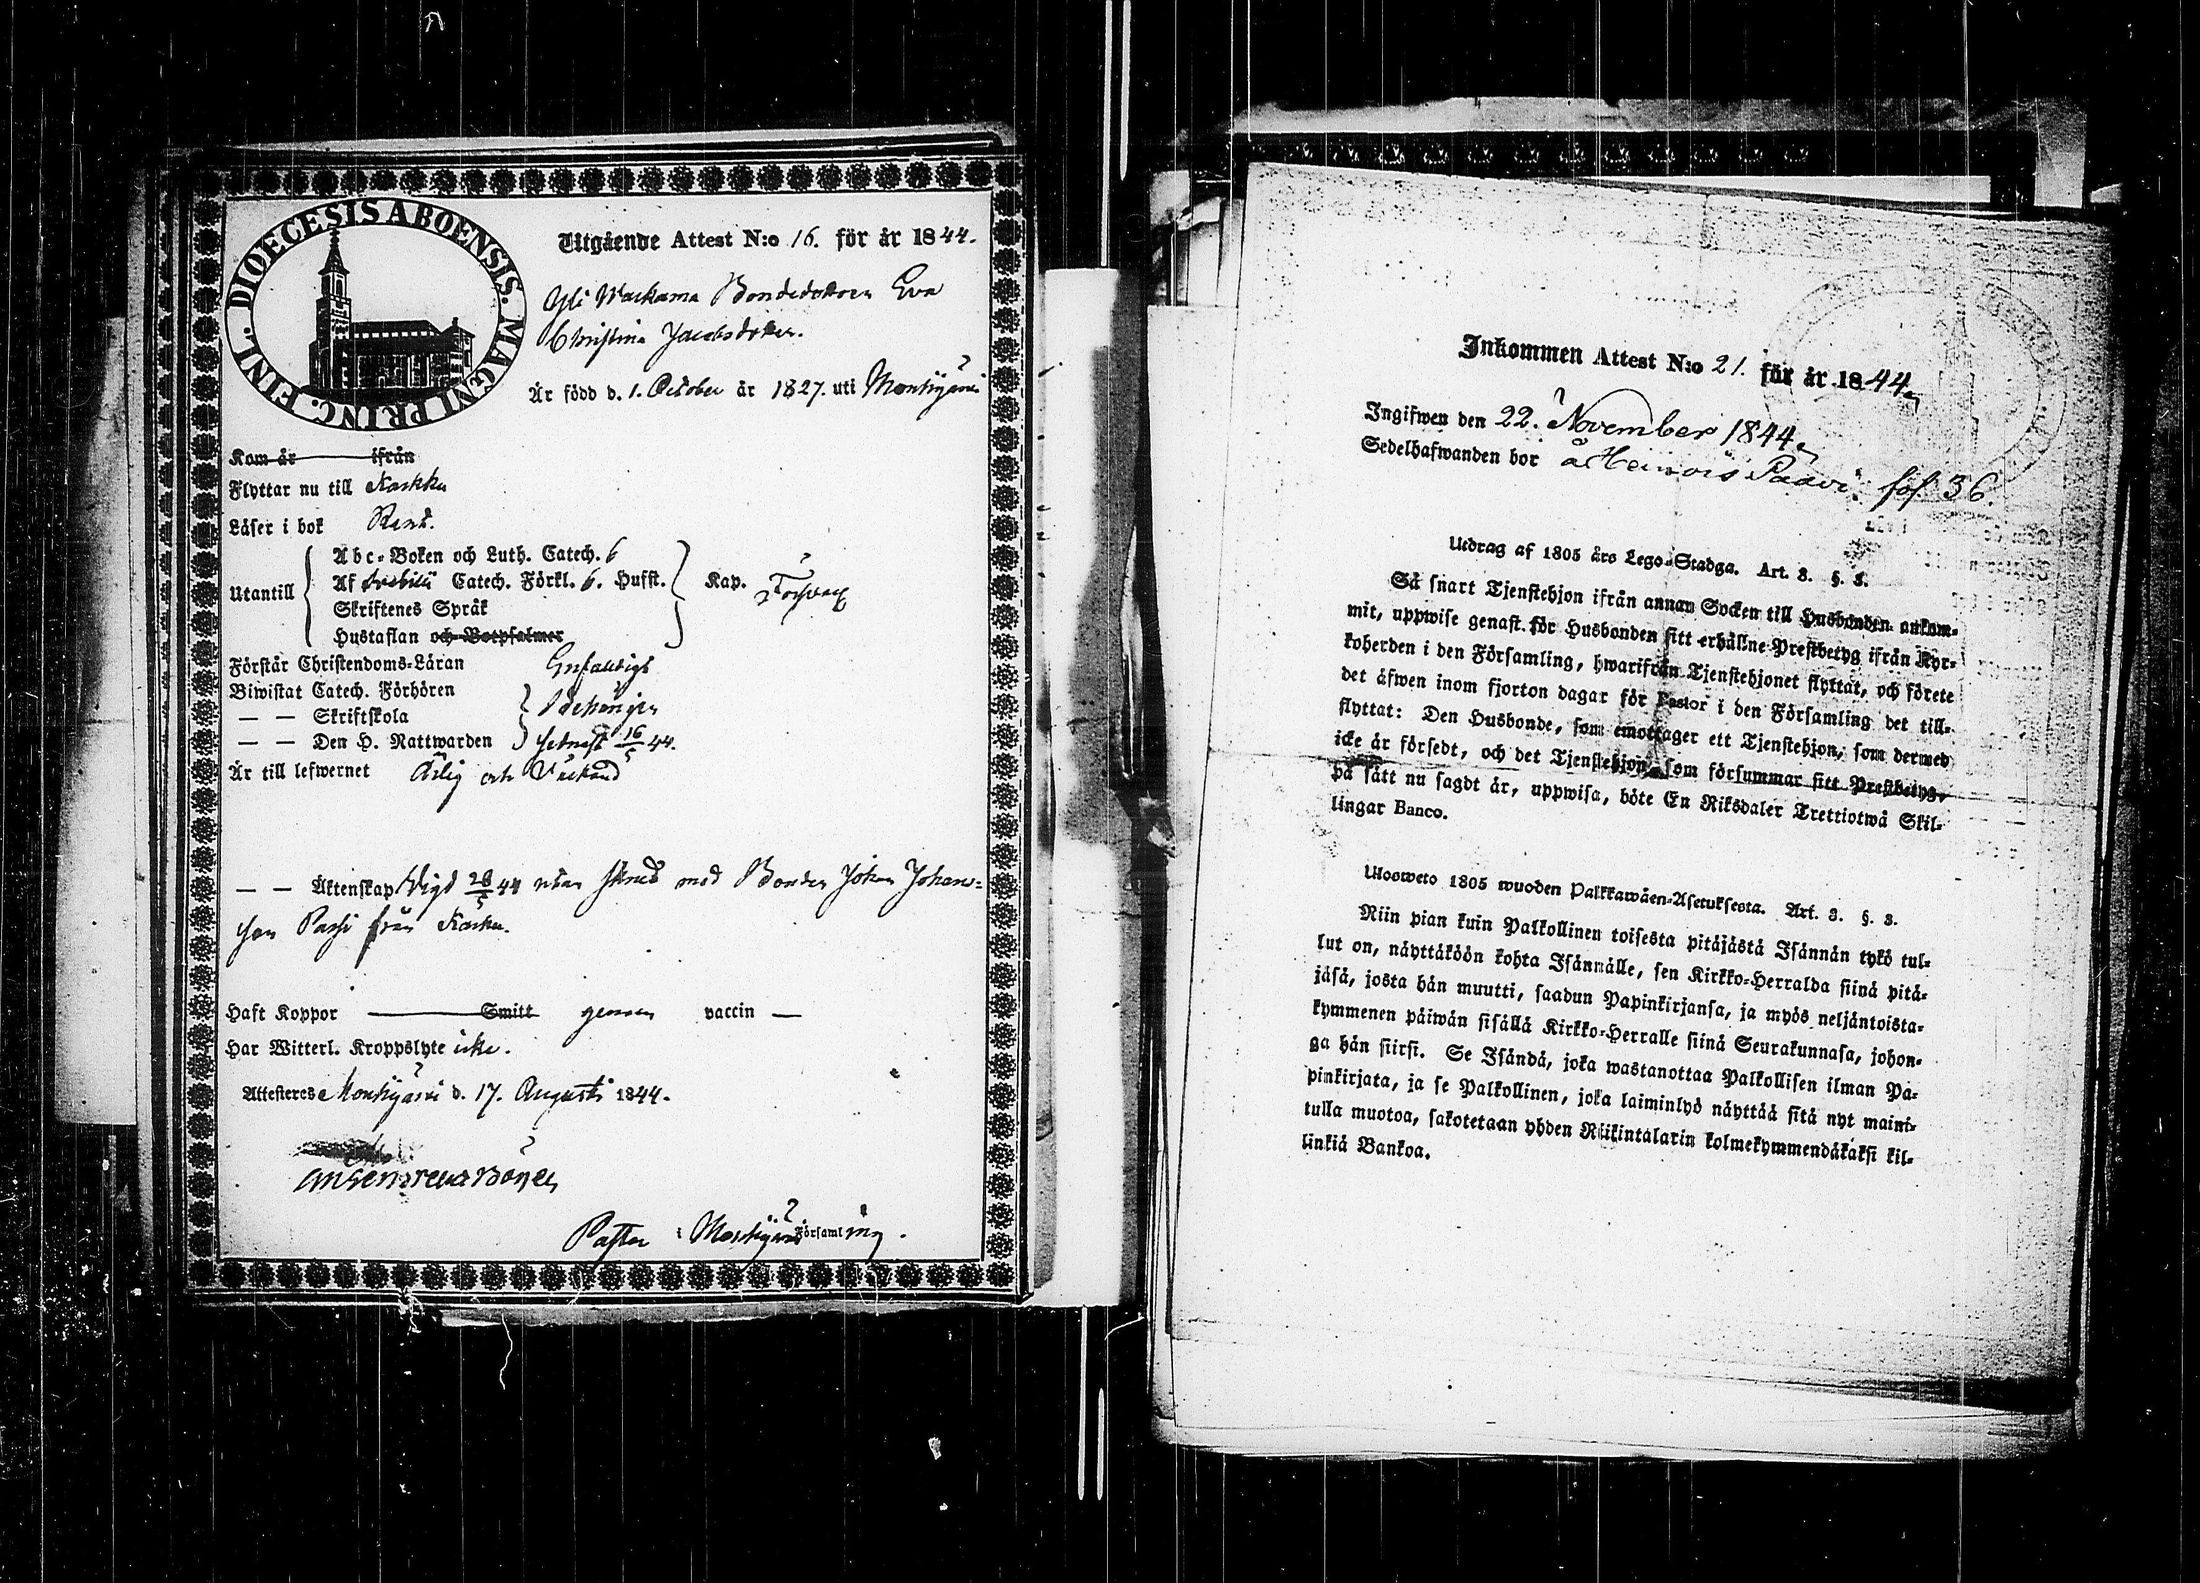 FINL. DIOECESIS ABOENSIS. MAGNI PRINC.
Utgående Attest N:o 16. för år 1844.
Yli Wackama Bondedottren Eva
Christina Jacobsdotter.
Är född d. 1. October år 1827. uti Mouhijärvi
Kom år ifrån
Flyttar nu till Karkku
Läser i bok Rent.
Utantill
Abc-Boken och Luth. Catech. 6
Af Svebilii Catech. Förkl. 6. Husst.
Skriftenes Språk
Hustaflan och Botpsalmer
Kap. Försvarl
Förstår Christendoms-Läran Enfaldigt
Biwistat Catech. Förhören
— — Skriftskola Behörigen
— — Den H. Nattwarden senast 16/5 44.
Är till lefwernet Ärlig och
— — Äktenskap Vigd 28/5 44 utan med Bonden Johan Johans-
son Passi från Karku.
Haft Koppor Smitt genom vaccin —
Har Witterl. Kroppslyte icke.
Attesteres Mouhijärvi d. 17. Augusti 1844.
Pastor i Mouhijärvi Församling.
Inkommen Attest N:o 21. för år 1844.
Ingifwen den 22. November 1844.
Sedelhafwanden bor å Heinois Paavi. fol 36.
Utdrag af 1805 års Lego-Stadga. Art. 3. §. 3.
Så snart Tjenstehjon ifrån annan Socken till Husbonden ankom-
mit, uppwise genast för Husbonden sitt erhållne Prestbetyg ifrån Kyr-
koherden i den Församling, hwarifrån Tjenstehjonet flyttat, och förete
det äfwen inom fjorton dagar för Pastor i den Församling det till-
flyttat: Den Husbonde, som emottager ett Tjenstehjon, som dermed
icke är försedt, och det Tjenstehjon, som försummar sitt Prestbetyg,
på sätt nu sagdt är, uppwisa, böte En Riksdaler Trettiotwå Skil-
lingar Banco.
Ulosweto 1805 wuoden Palkkawäen-Asetuksesta. Art. 3. §. 3.
Niin pian kuin Palkollinen toisesta pitäjästä Isännän tykö tul-
lut on, näyttäköön kohta Isännälle, sen Kirkko-Herralda siinä pitä-
jäsä, josta hän muutti, saadun Papinkirjansa, ja myös neljäntoista-
kymmenen päiwän sisällä Kirkko-Herralle siinä Seurakunnasa, johon-
ga hän siirsi. Se Isändä, joka wastanottaa Palkollisen ilman Pa-
pinkirjata, ja se Palkollinen, joka laiminlyö näyttää sitä nyt maini-
tulla muotoa, sakotetaan yhden Riikintalarin kolmekymmendäkaksi kil-
linkiä Bankoa.